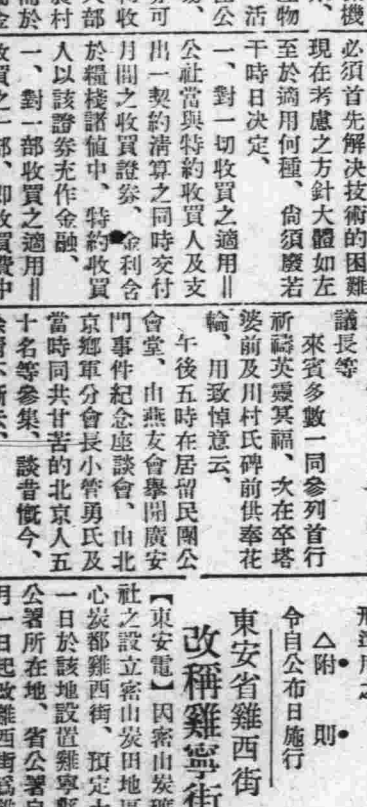 機
物
活
公
可
收
部
農村
於
必須首先解决技術的困難
現在考慮之方針大體如左
至於適用何種、尙須廢若
干時日决定、
一、對一切收買之適用‖
公社當與特約收買人及支
出一契約淸算之同時交付
月間之收買證券、金利舍
於糧棧諸値中、特約收買
人以該證券充作金融、
一、對一部收買之適用‖
收買之一部、卽收買費中
議長等
來賓多數一同參列首行
祈禱英靈冥福、次在卒塔
婆前及川村氏碑前供奉花
輪、用致悼意云、
午後五時在居留民團公
會堂、由燕友會舉開廣安
門事件紀念座談會、由北
京鄉軍分會長小管勇氏及
當時同共甘苦的北京人五
十名等參集、談昔慨今、
△附　則
令自公布日施行
東安省雞西街
改稱雞寧街
【東安電】因密山炭礦
社之設立密山炭田地區
心炭都雞西街、預定
一日於該地設置雞寧
公署所在地、省公署自
月一日起改雞西街爲